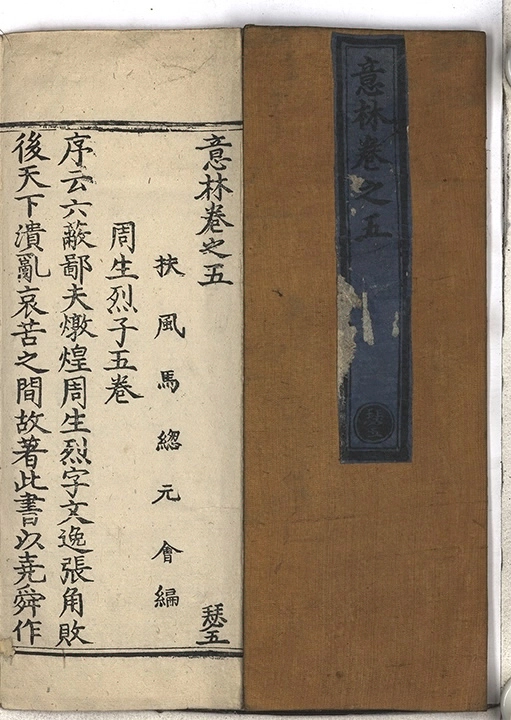 意林卷之五
瑟五
意林卷之五
瑟五
扶風馬緫元會編
周生烈子五卷
序云六蔽鄙夫燉煌周生烈字文逸張角敗
後天下潰亂哀苦之間故著此書以堯舜作